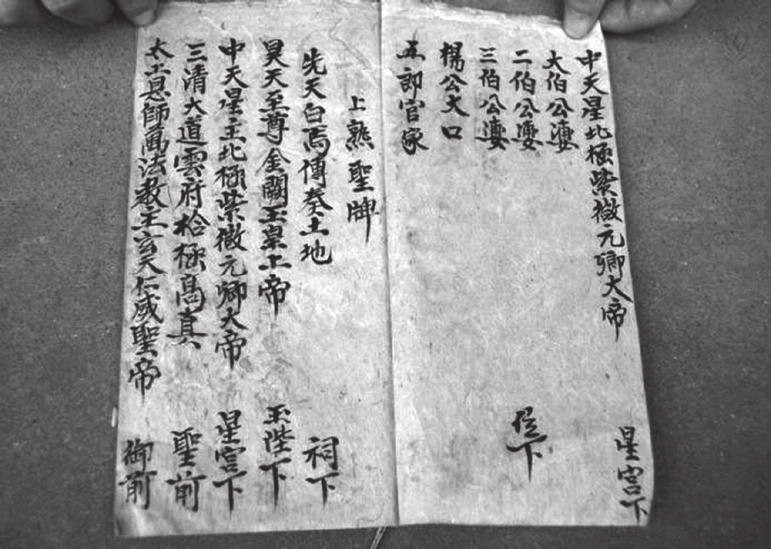 中天星北極紫微元卿大帝 星宮下
大伯公婆
二伯公婆
三伯公婆 位下
楊公大口
五郎官家
上熟聖牌
先天白焉傳奏土地 祠下
昊天至尊金闕玉皇上帝 玉陛下
中天星主北極紫微元卿大帝 星宮下
三清大道雲府拾極高真 聖前
太上恩師萬法教主玄天仁威聖帝 御前